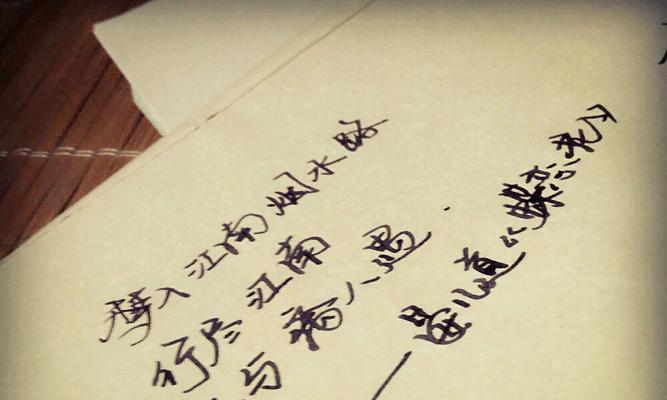 夢入江南烟水路
行尽江南
与离人遇.
——晏几道《蝶恋花》